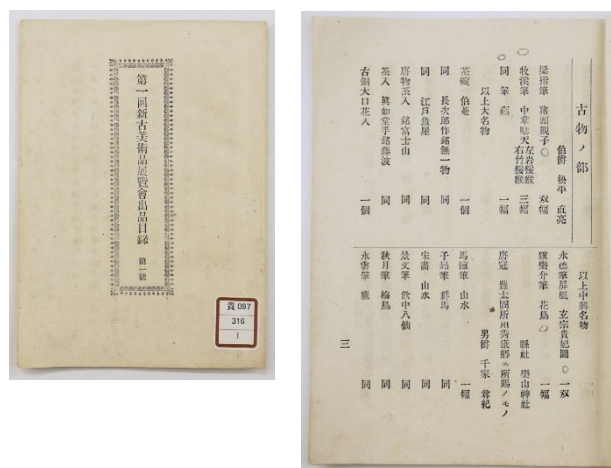 第一回新古美術品展覽會出品目録 第一號
貴 097
316
1
古物ノ部
伯爵 松平 直亮
梁楷筆 猪頭蜆子 双幅
牧溪筆 中韋駄天左岩猿猴右竹猿猴 三幅
同筆 燕 一幅
以上大名物
茶碗 伯庵 一個
同 長次郎作銘無一物 同
同 江戸魚屋 同
唐物茶入 銘富士山 同
茶入 眞如堂手銘藤波 同
古銅大口花入 一個
以上中興名物
永德筆屏風 玄宗貴妃圖 一双
花鳥 一幅
縣社 樂山神社
唐冠 豊太閤所用秀康郷ニ所賜ノモノ
男爵 千家 尊紀
馬遠筆 山水 一幅
子昂筆 群馬 同
宋畵 山水 同
景文筆 飮中八仙 同
秋月筆 梅鳥 同
同
三